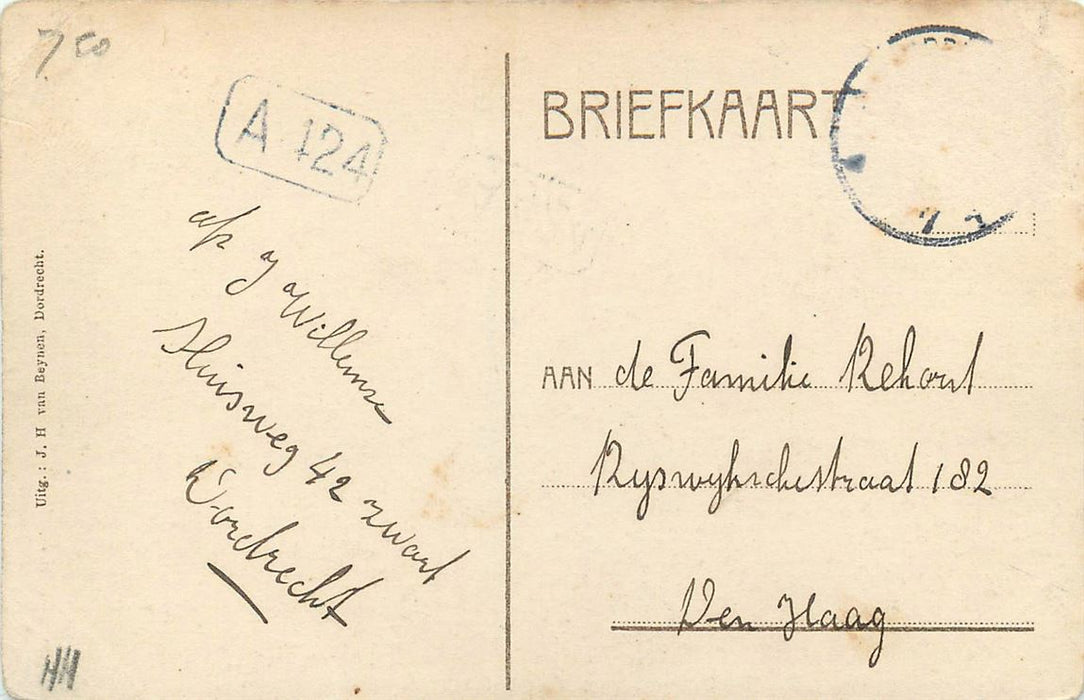 7 50
A 124
op J Willemse
Sluisweg 42 zwart
Dordrecht
Uitg.: J. H van Beynen, Dordrecht.
BRIEFKAART
AAN de Familie Rehorst
Ryswykschestraat 182
Den Haag